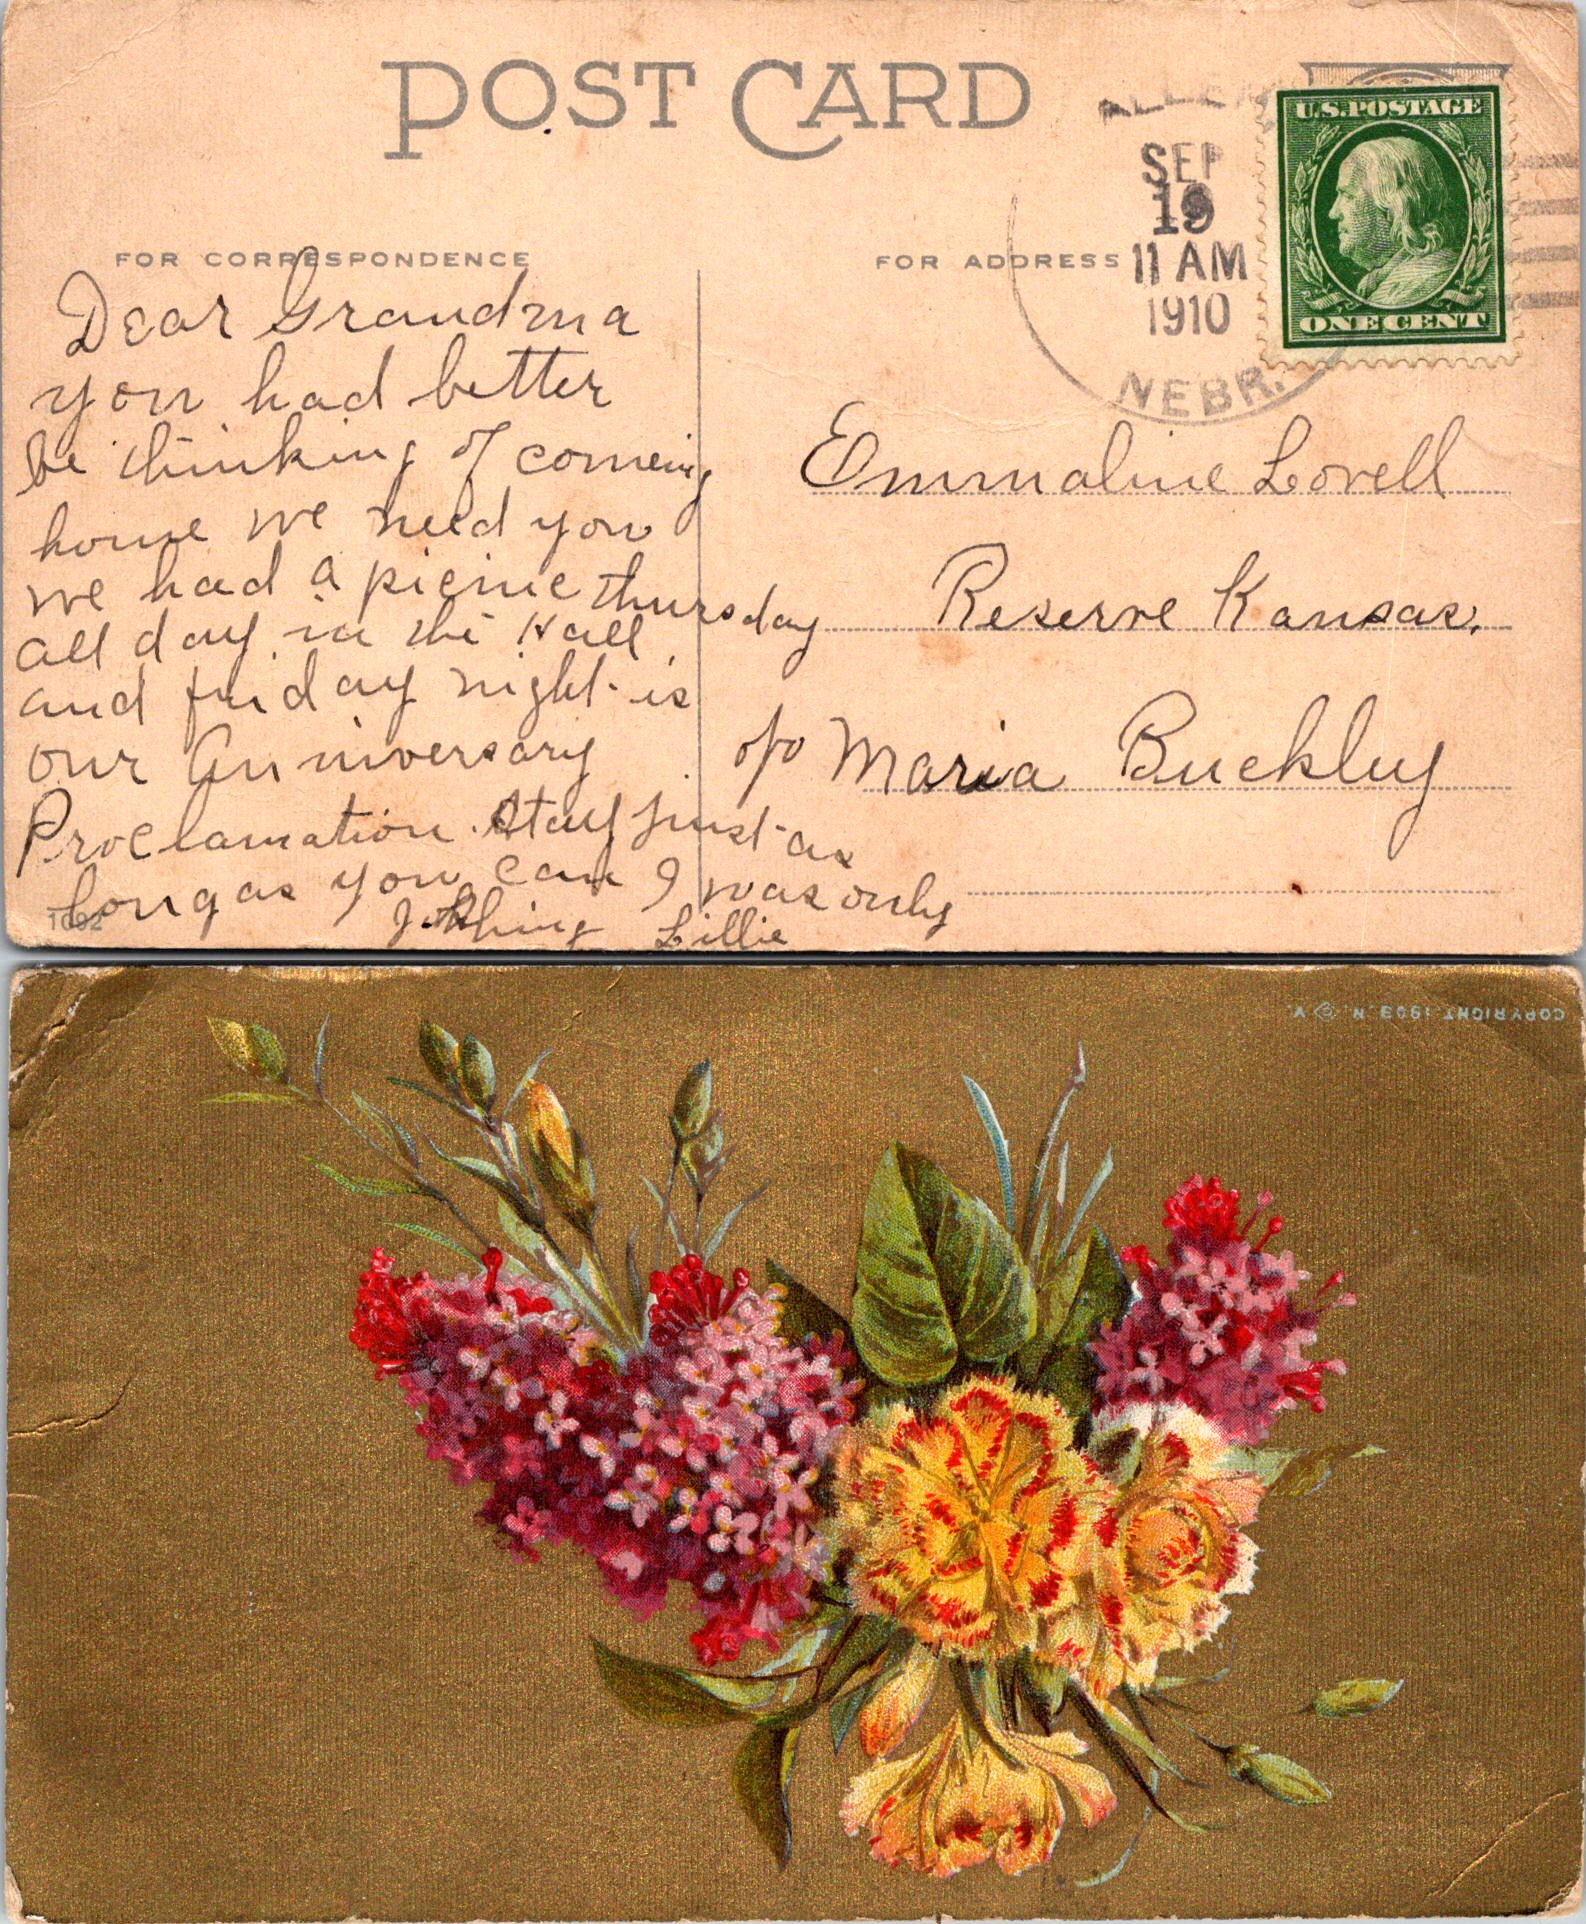 POST CARD
SEP
19
11 AM
1910
NEBR.
U.S. POSTAGE
ONE CENT
FOR CORRESPONDENCE
FOR ADDRESS
Dear Grandma
you had better
be thinking of comeing
home we need you
we had a picnic thursday
all day in the Hall
and friday night is
our Anniversary
Proclamation. Stay just as
long as you can I was only
Lillie
1092
Emmaline Lovell
Reserve Kansas.
c/o Maria Buckley
COPYRIGHT. 1909. N.